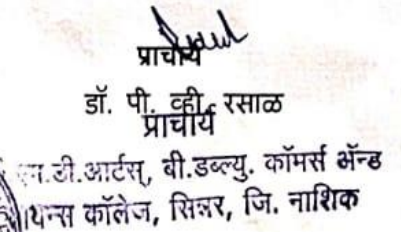 प्राचार्य
डॉ. पी. व्ही. रसाळ
प्राचार्य
एम.डी.आर्टस्, बी.डब्ल्यु. कॉमर्स ॲन्ड
सायन्स कॉलेज, सिन्नर, जि. नाशिक